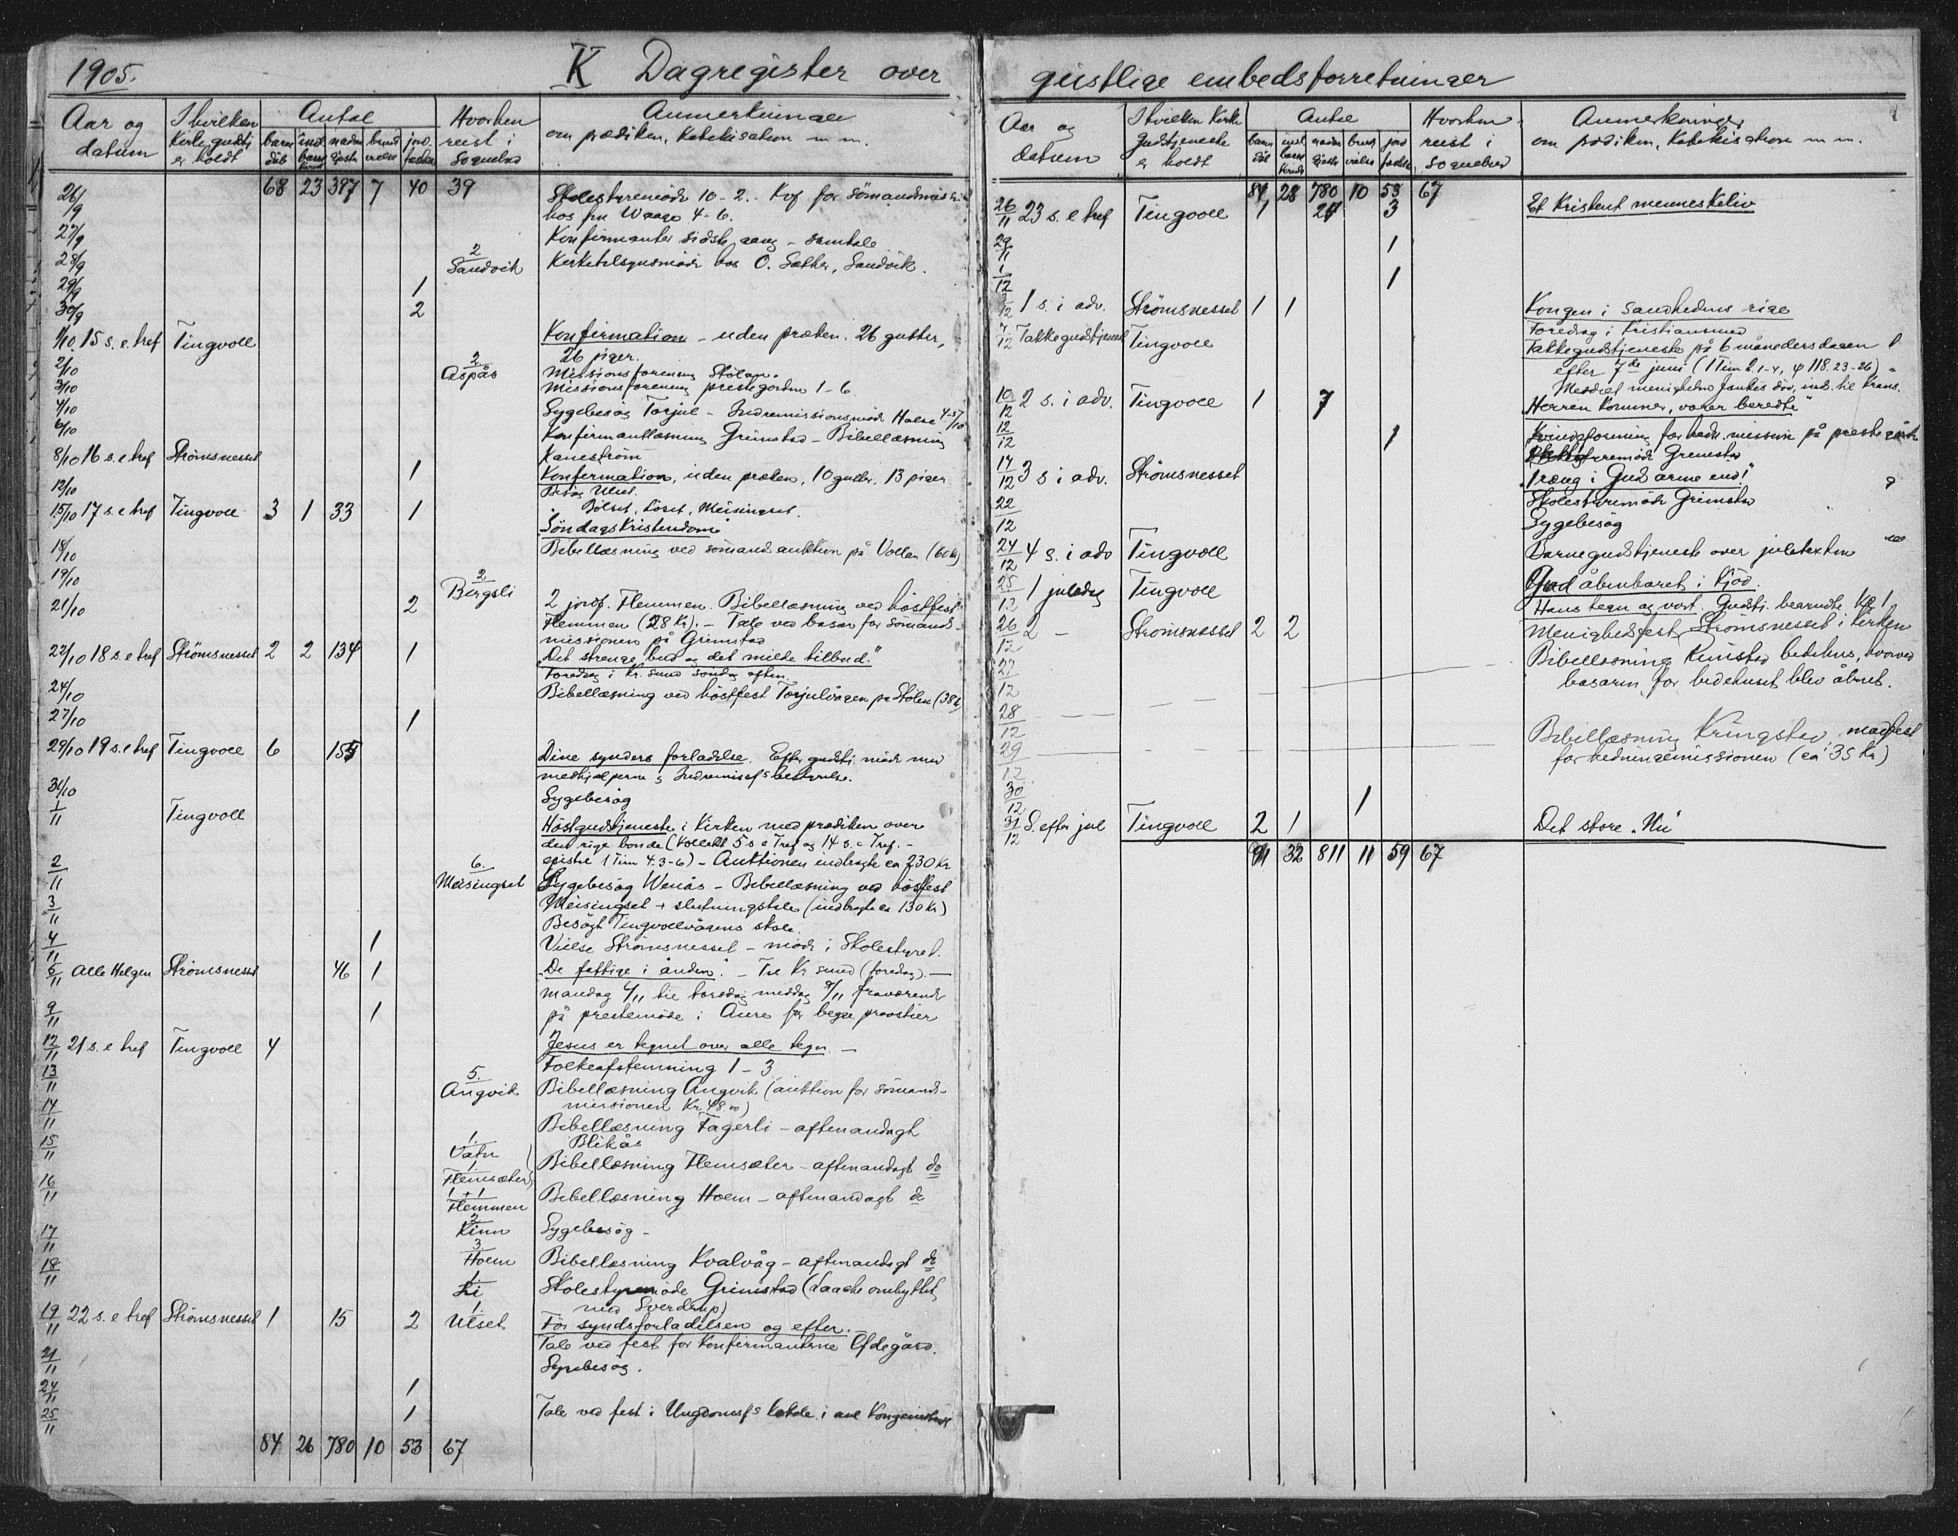 1905. K Dagregister over
Aar og datum
I hvilken Kirke gudstj. er holdt
Antal
Hvorhen reist i Sognebud
Anmerkninger om prædiken, katekisation m. m.
68 23 387 7 40 39
26/9 Skolestyremöde 10-2. Kvf. for sömandsmis
hos fru Waage 4-6.
27/9 Konfirmanter sidste gang - samtale
28/9 2 Sandvik Kirketilsynsmöde hos O. Sæther, Sandvik.
29/9 1
30/9 2
1/10 15 s. e. tref Tingvoll Konfirmation - uden præken. 26 gutter,
26 piger.
2/10 2 Aspås Missionsforening Skolen
3/10 Missionsforening prestegorden 1-6.
4/10 Sygebesøg Torjul - Indremissionsmöde Halse 4-5/10
6/10 Konfirmantlæsning Grimstad - Bibellæsning
Kanestrøm
8/10 16 s. e. tref Strömsnesset 1 Konfirmation, uden præken, 10 gutter, 13 piger
12/10
15/10 17 s. e. tref Tingvoll 3 1 33 1 "Söndagskristendom"
18/10 Bibellæsning ved sömands auktion på Vollan (60 kr)
19/10 2 Bergsli
21/10 2 2 jordf. Flemmen. Bibellæsning ved höstfest
Flemmen (28 Kr). - Tale ved basar for sömands-
missionen på Grimstad
22/10 18 s. e. tref Strömsnesset 2 2 134 1 "Det strenge bud og det milde tilbud."
Foredrag i Kr. sund söndag aften.
24/10 Bibellæsning ved höstfest Torjulvågen på Skolen (38 k)
27/10 1
29/10 19 s. e. tref Tingvoll 6 155 Dine synders forladelse. Efter gudstj. möde med
medhjelperne & Indremisfs bestyrelse.
31/10 Sygebesøg
1/11 Tingvoll Höstgudstjeneste i Kirken med prædiken over
den rige bonde (kollekt 5 s. e Tref og 14 s. e Tref. -
epistel 1 Tim 4.3-6) - Auktionen indbragte ca 230 Kr
2/11 6. Meisingset Sygebesøg Wenås - Bibellæsning ved höstfest
3/11 Meisingset + slutningstale (indbragte ca 130 Kr)
Besögt Tingvollvågens skole.
4/11 1 Vielse Strömsnesset - möde i Skolestyret.
5/11 Alle Helgen Strömsnesset 46 1 "De fattige i ånden." - Til Kr sund (foredrag). -
mandag 6/11 til torsdag middag 9/11 fraværende
9/11 1 på prestemöde i Aure for begge provstier
12/11 21 s. e tref Tingvoll 4 Jesus er tegnet over alle tegn -
13/11 Folkeafstemning 1-3
5. Angvik Bibellæsning Angvik (auktion for sömands-
14/11 missionen Kr. 48 00)
Bibellæsning Fagerli - aftenandagt
15/11 1 Vatn Blikås
1 Flemsæter Bibellæsning Flemsæter - aftenandagt do
16/11 1+1 Flemmen Bibellæsning Hoem - aftenandagt do
17/11 2 Kinn Sygebesøg -
3 Hoem Bibellæsning Kvalvåg - aftenandagt do
18/11 1 Li Skolestyremöde Grimstad (Laache ombyttet
med Sverdrup)
19/11 22 s. e tref Strömsnesset 1 15 2 1. Ulset För syndsforladelsen og efter.
Tale ved fest for konfirmanterne Ødegård.
21/11 Sygebesøg.
24/11 1
25/11 1 Tale ved fest i Ungdomsfs lokale i anl Kongeindtoget
84 26 780 10 53 67
geistlige embedsforretninger
Aar og datum
I hvilken Kirke Gudstjeneste er holdt
Antal
Hvorhen reist i Sognebud
Anmerkninger om prædiken, Katekisation m. m.
84 28 780 10 53 67
26/11 23 s. e tref Tingvoll 1 24 3 Et Kristent menneskeliv
29/11 1
1/12 1
3/12 1 s. i adv. Strömsnesset 1 1 Kongen i sandhedens rige
Foredrag i Kristiansund
7/12 Takkegudstjenest Tingvoll Takkegudstjeneste på 6 månedersdagen
efter 7de juni (1 Tim 2.1-4, ψ 118.23-26)
10/12 2 s. i adv. Tingvoll 1 7 "Herren kommer, værer beredte"
12/12 1 Kvindeforening for hedn. mission på prestegården
Skolestyremöde Grimstad
17/12 3 s i adv. Strömsnesset "Træng i Gud arme ind!"
22/12 Skolestyremöde Grimstad
Sygebesög
24/12 4 s. i adv Tingvoll Barnegudstjeneste over juletexten
25/12 1 juledag Tingvoll Gud åbenbaret i kjöd.
26/12 2 - Strömsnesset 2 2 Hans tegn og vort. Gudstj. begyndte kl 1
Menighedsfest Strömsnesset i Kirken
27/12 Bibellæsning Kimstad bedehus, hvorved
basaren for bedehuset blev åbnet.
28/12
29/12 Bibellæsning Kringstad, madfest
for hedningemissionen (ca 35 Kr)
30/12 1
31/12 S. efter jul Tingvoll 2 1 Det store "Nu"
91 32 811 11 59 67